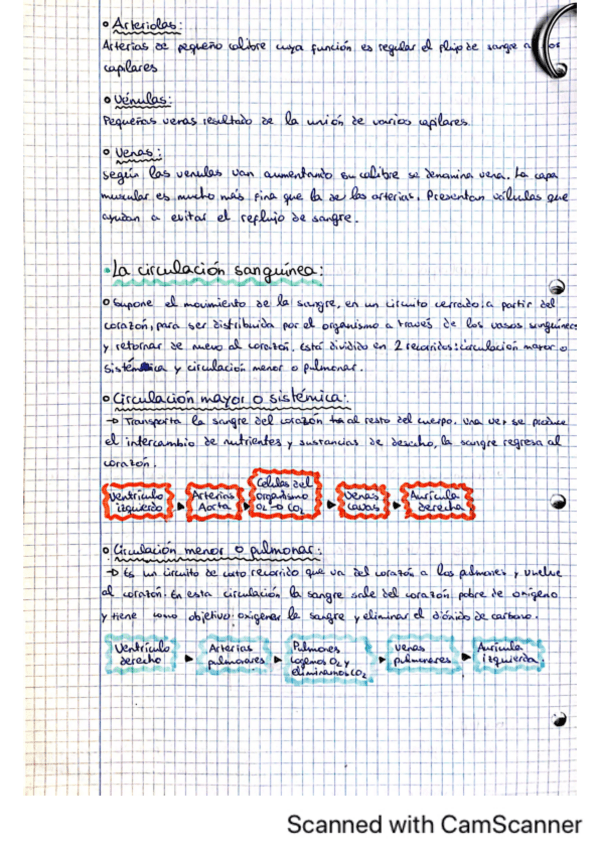 o Arteriolas:
Arterias de pequeño calibre cuya función es regular el flujo de sangre a los
capilares
o Vénulas:
Pequeñas venas resultado de la unión de varios capilares.
o Venas:
según las venulas van aumentando su calibre se denomina vena. La capa
muscular es mucho más fina que la de las arterias. Presentan válvulas que
ayudan a evitar el reflujo de sangre.
• La circulación sanguínea:
o Supone el movimiento de la sangre, en un circuito cerrado: a partir del
corazón, para ser distribuida por el organismo a través de los vasos sanguíneos
y retornar de nuevo al corazón. Está dividido en 2 recorridos: circulación mayor o
sistémica y circulación menor o pulmonar.
o Circulación mayor o sistémica:
→ Transporta la sangre del corazón al resto del cuerpo. Una vez se produce
el intercambio de nutrientes y sustancias de desecho, la sangre regresa al
corazón.
Ventrículo izquierdo ▶ Arterias Aorta ▶ Células del organismo O2 → CO2 ▶ Venas cavas ▶ Aurícula derecha
o Circulación menor o pulmonar:
→ Es un circuito de corto recorrido que va del corazón a los pulmones y vuelve
al corazón. En esta circulación la sangre sale del corazón pobre de oxígeno
y tiene como objetivo: oxigenar la sangre y eliminar el dióxido de carbono.
Ventrículo derecho ▶ Arterias pulmonares ▶ Pulmones cogemos O2 y eliminamos CO2 ▶ venas pulmonares ▶ Aurícula izquierda.
Scanned with CamScanner